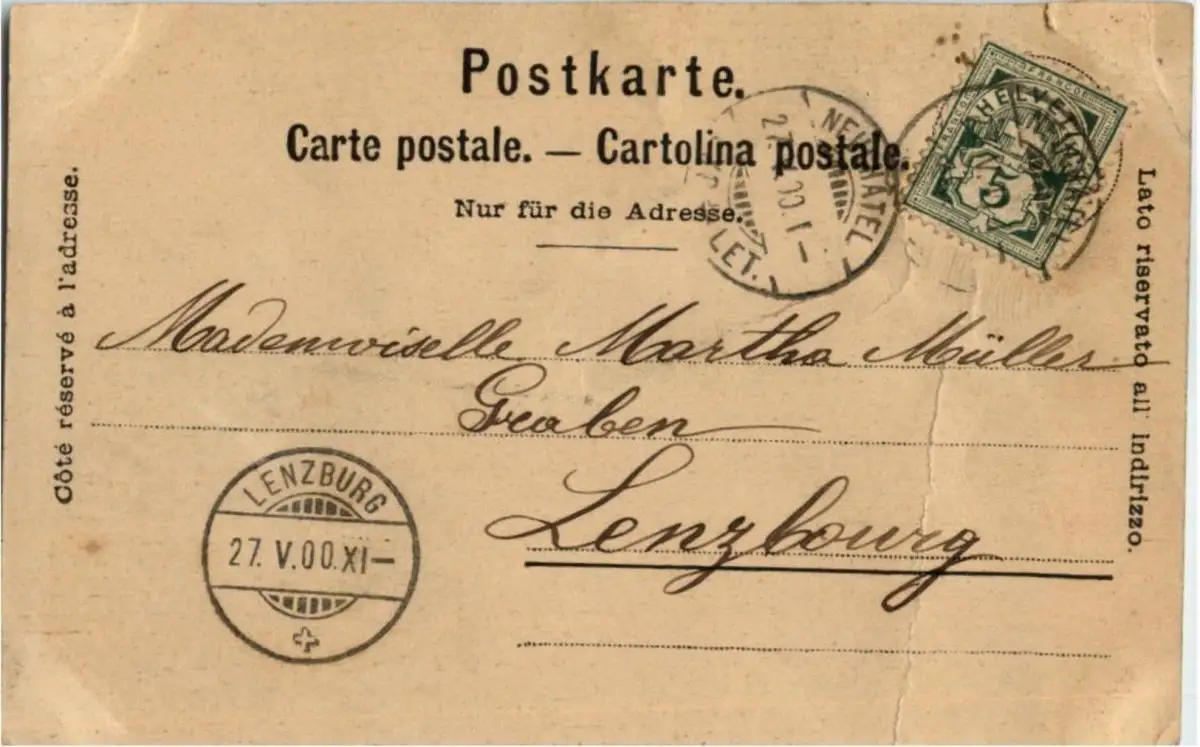 Postkarte.
Carte postale. — Cartolina postale.
Nur für die Adresse.
Côté réservé à l'adresse.
Lato riservato all' indirizzo.
FRANCO
HELVETIA
5
NEUCHÂTEL
27. V. 00. I–
LET.
Mademoiselle Martha Müller
Graben
Lenzbourg
LENZBURG
27. V. 00. XI–